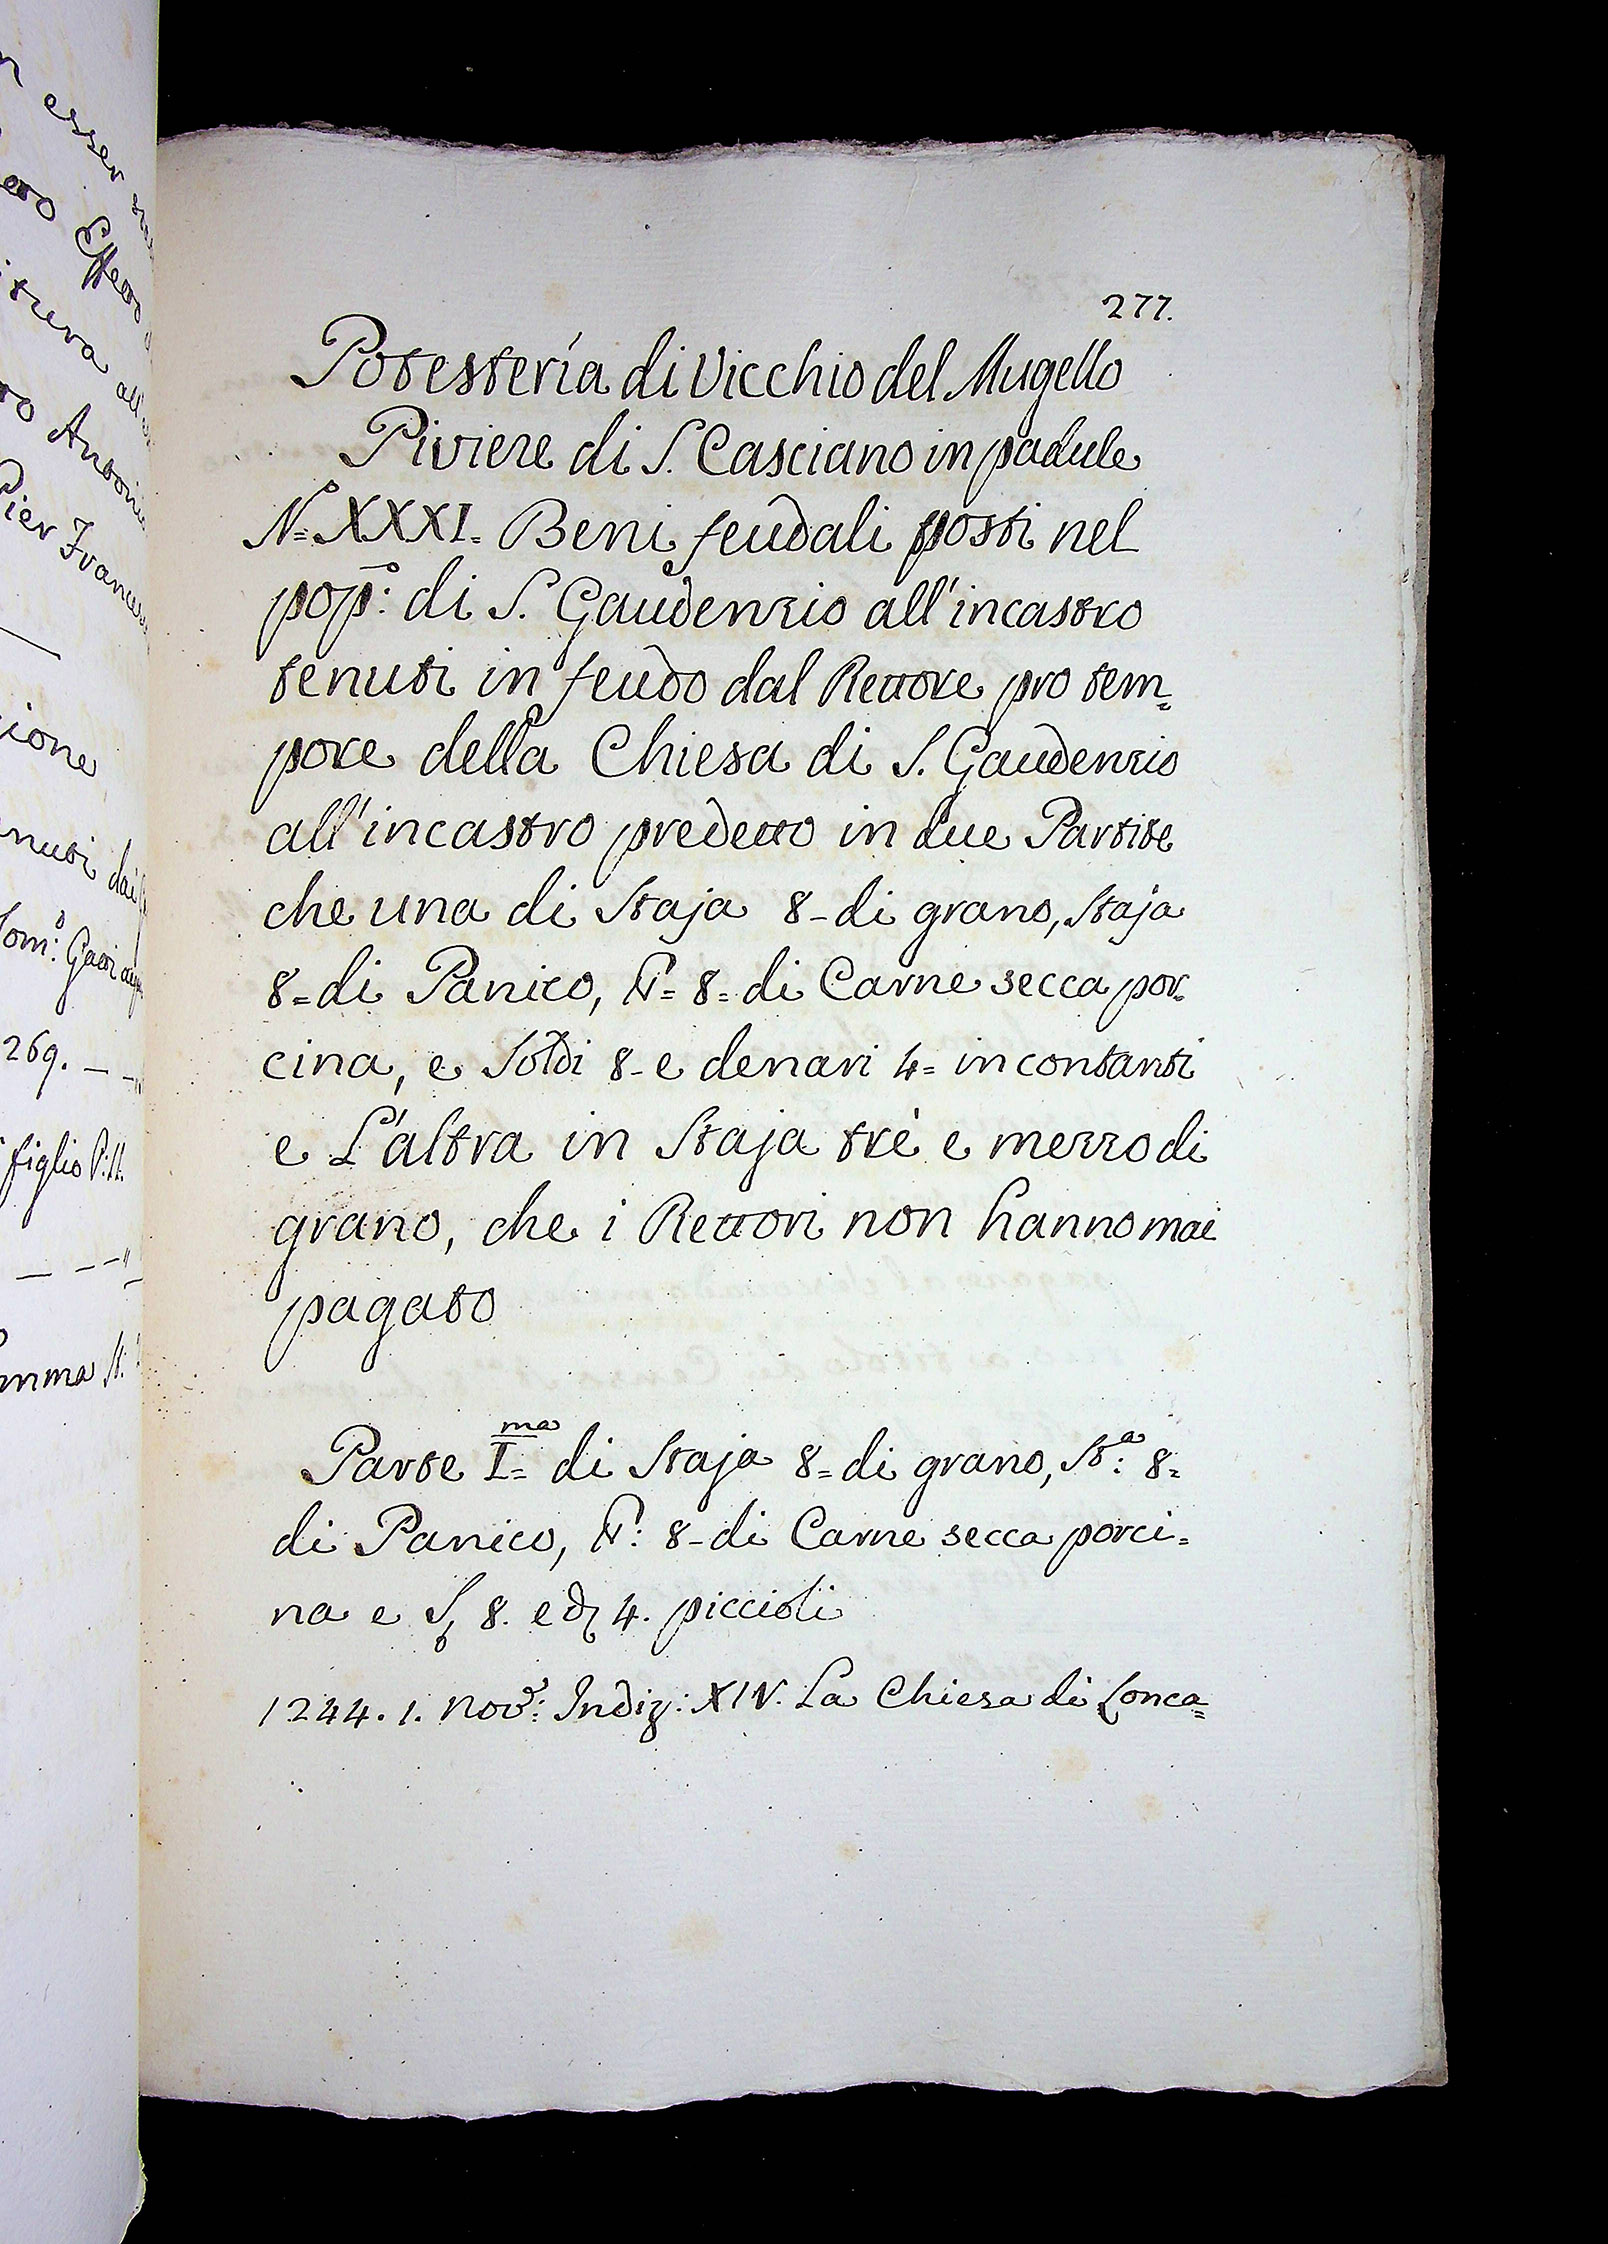 277.
Potestería di Vicchio del Mugello
Piviere di S. Casciano in padule
N.º XXXI. Beni feudali posti nel
pop.º: di S. Gaudenzio all'incastro
tenuti in feudo dal Rettore pro tem=
pore della Chiesa di S. Gaudenzio
all'incastro predetto in due Partite
che una di Staja 8- di grano, Staja
8= di Panico, 8= di Carne secca por=
cina, e Soldi 8- e denari 4= in contanti
e L'altra in Staja trè e mezzo di
grano, che i Rettori non hanno mai
pagato
Parte I.ma= di Staja 8= di grano, St.a: 8=
di Panico, 8- di Carne secca porci=
na e S 8. e d 4. piccioli
1244. 1. Nov.e: Indiz: XIV. La Chiesa di Lonca=
esser
Effetto
Antonio
Pier Francesco
ione
nuti dai
269. _ _
figlio